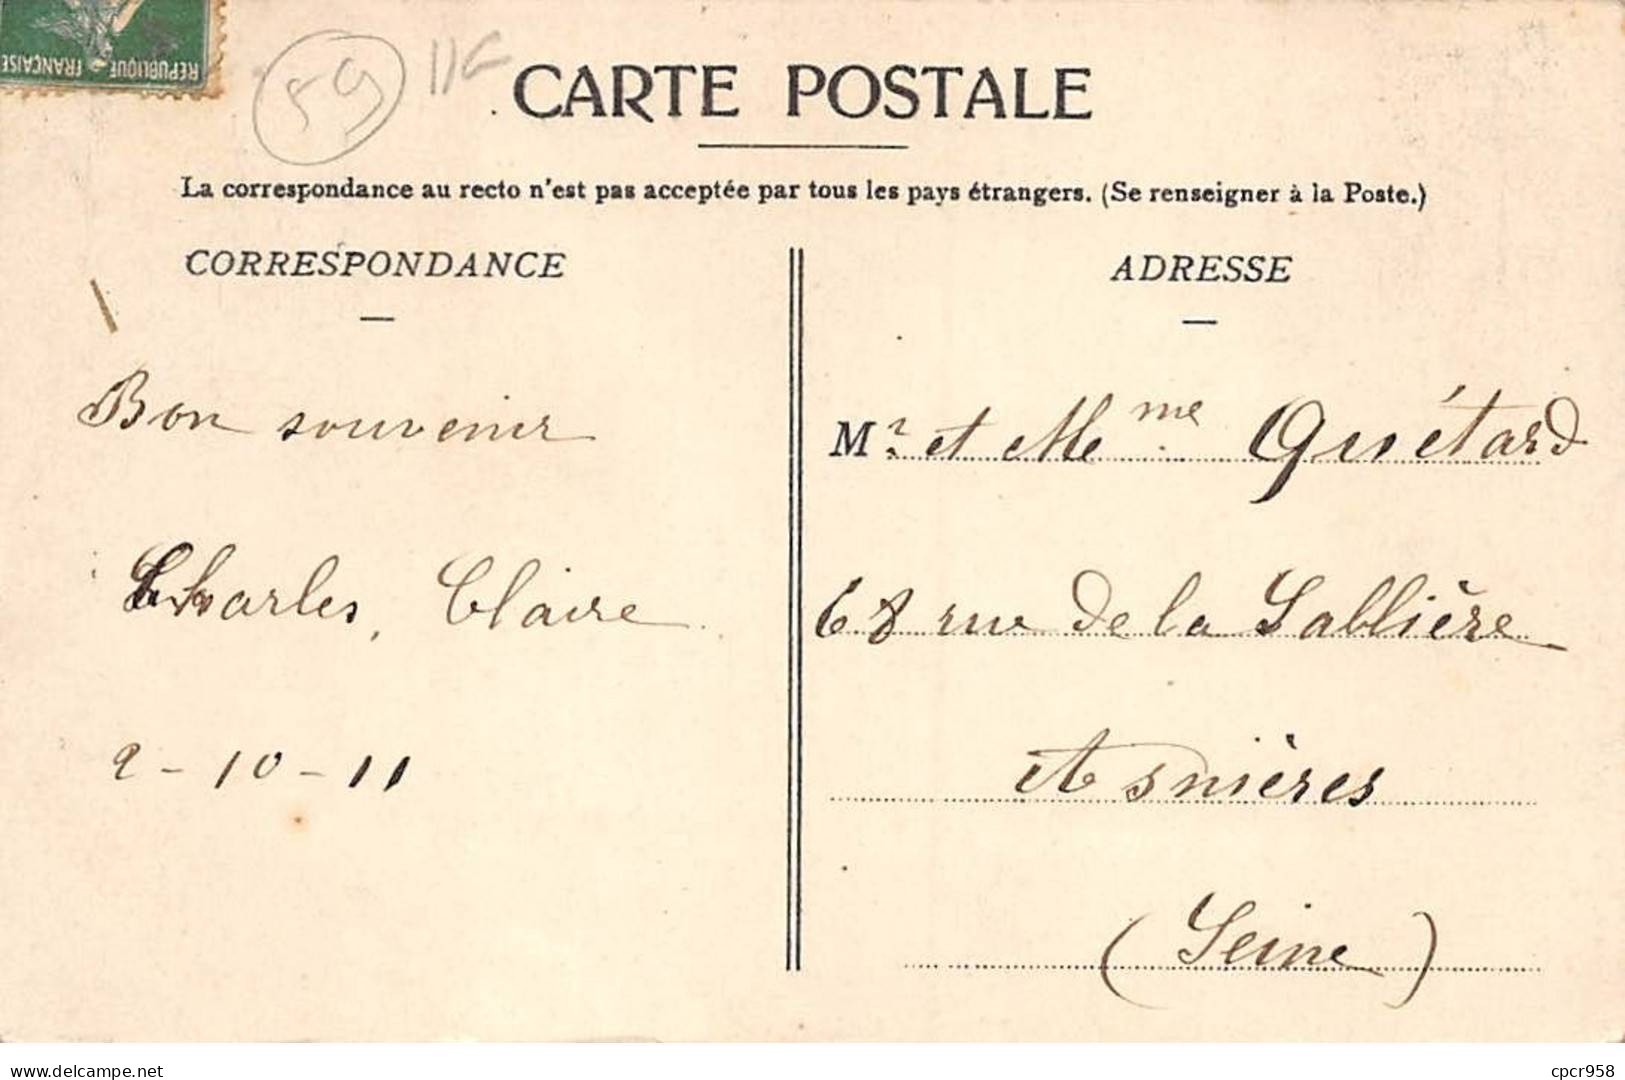 REPUBLIQUE FRANÇAISE
59
CARTE POSTALE
La correspondance au recto n'est pas acceptée par tous les pays étrangers. (Se renseigner à la Poste.)
CORRESPONDANCE
Bon souvenir
Charles, Claire
2-10-11
ADRESSE
Mr et Mme Quétard
68 rue de la Sablière
Asnières
(Seine)
delcampe.net
cpcr958